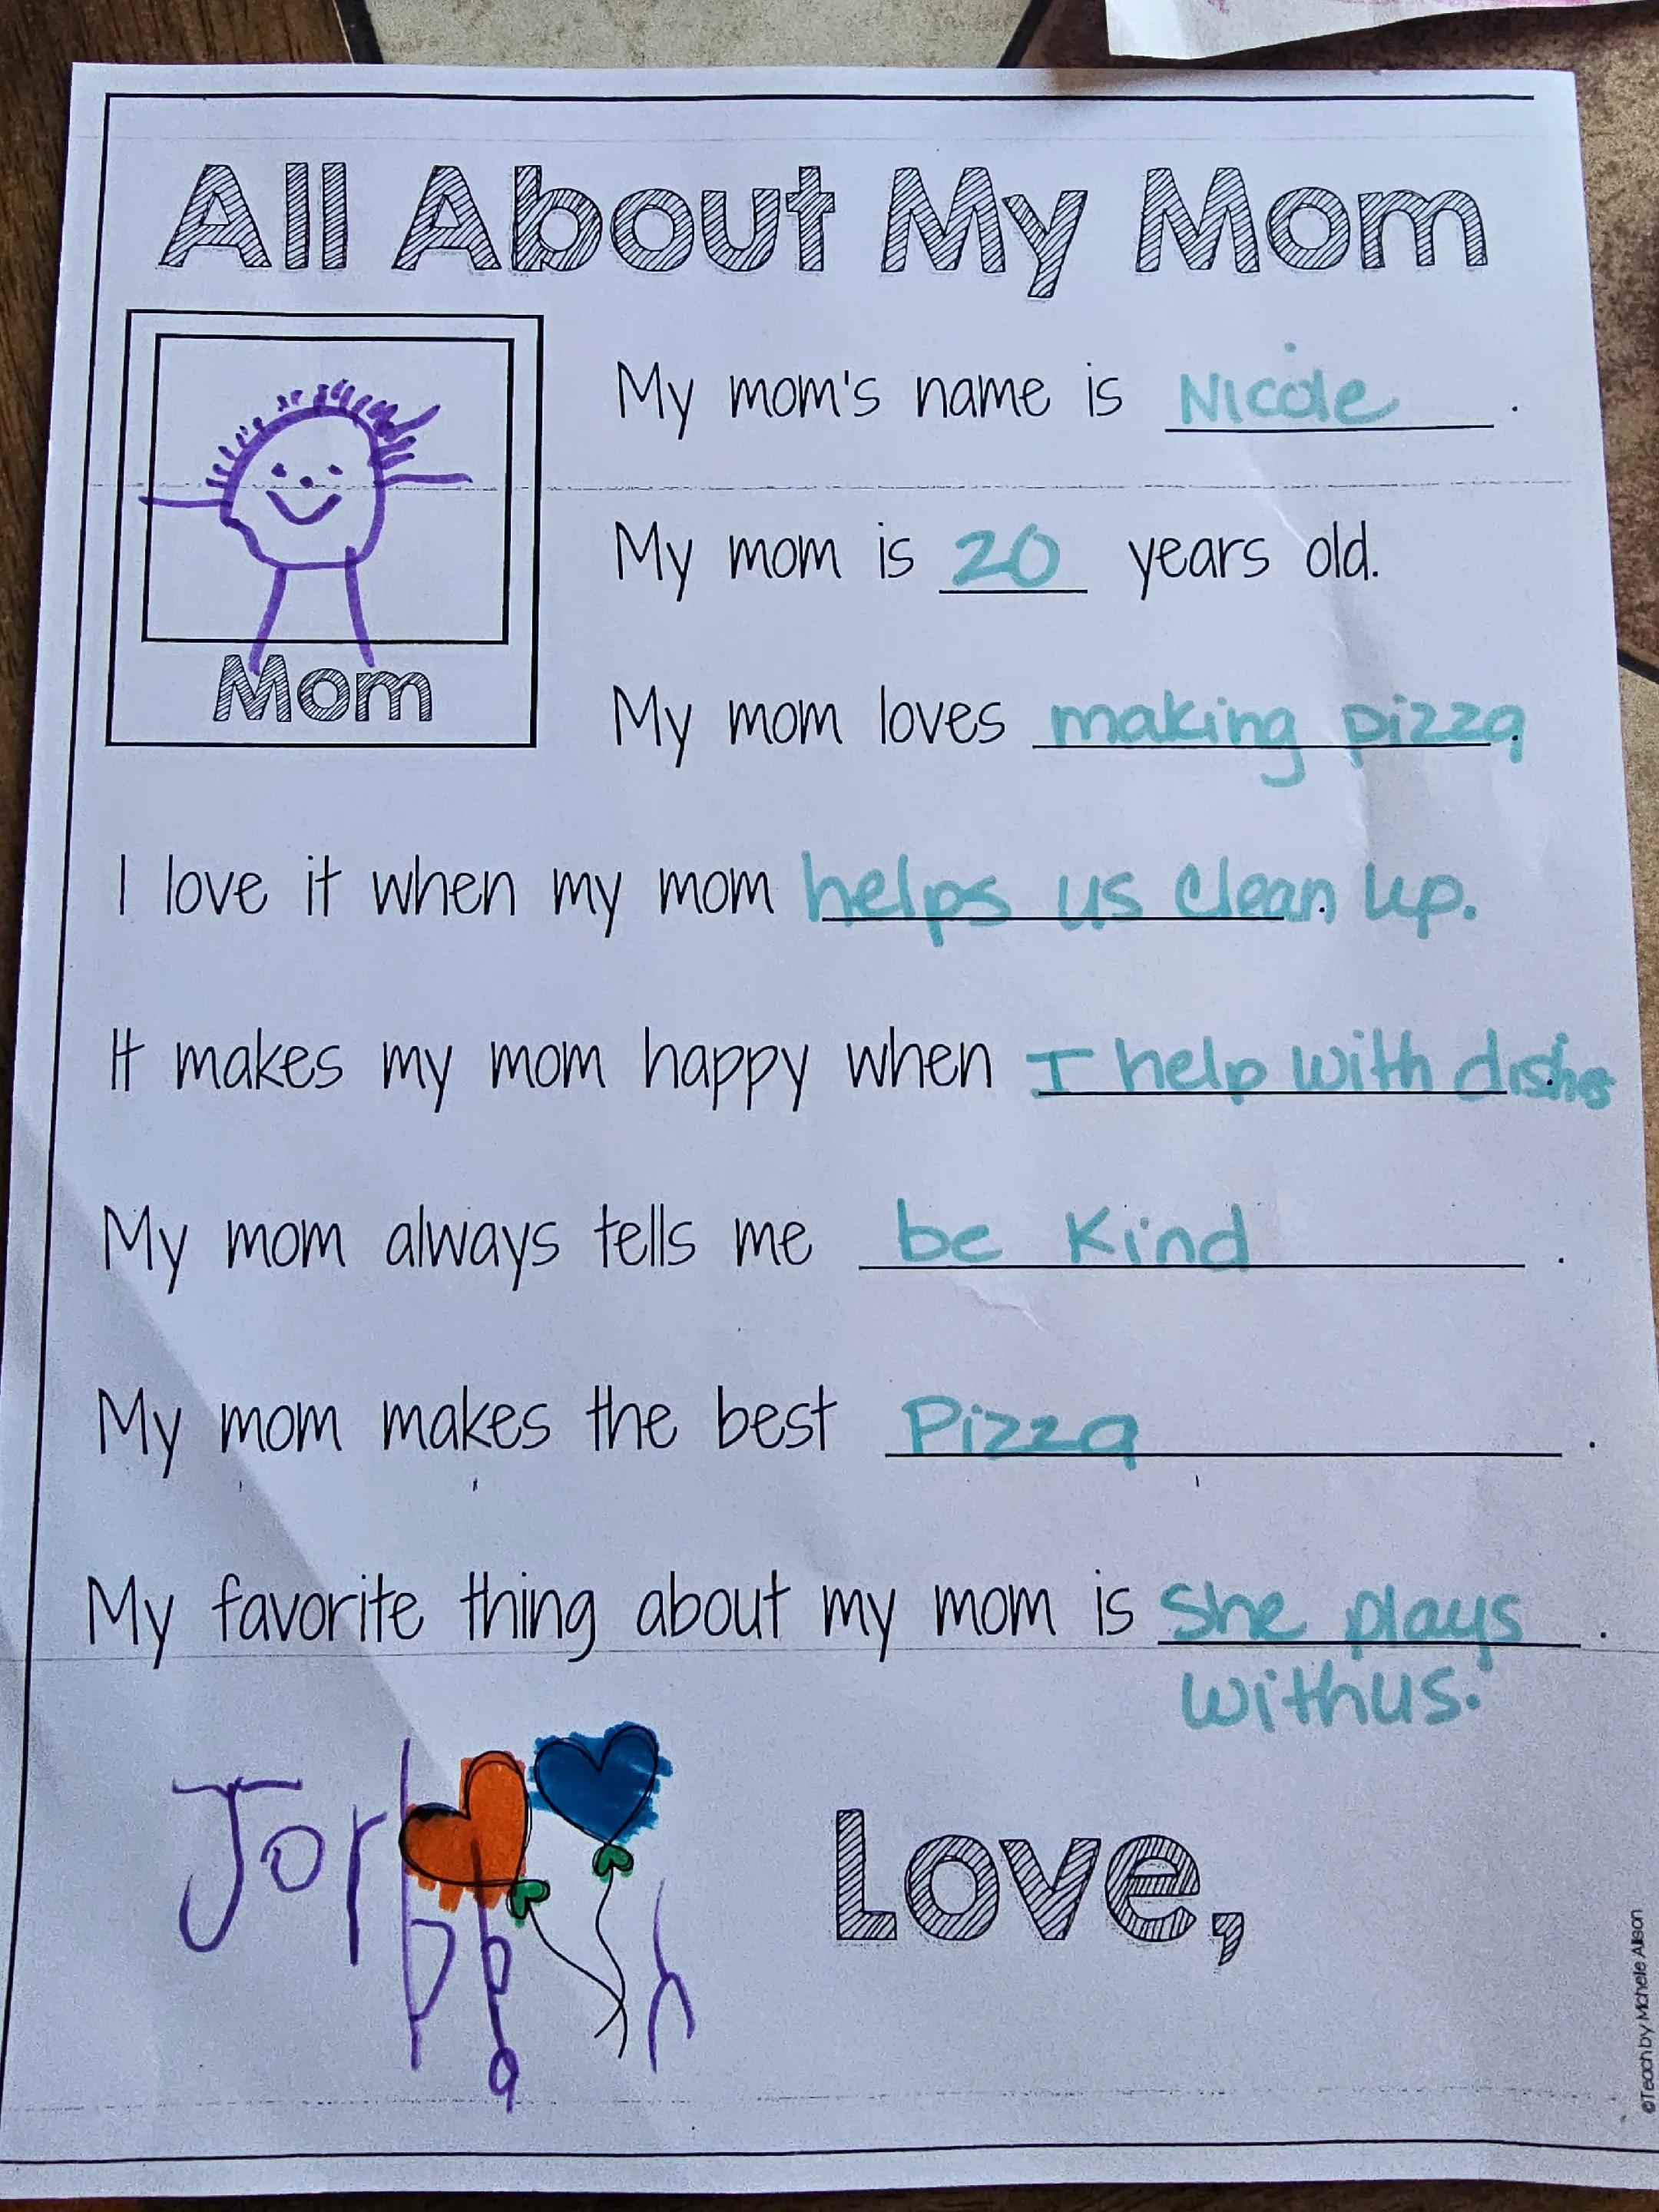 All About My Mom
My mom's name is Nicole.
My mom is 20 years old.
Mom
My mom loves making pizza.
I love it when my mom helps us clean. up.
It makes my mom happy when I help with dishes.
My mom always tells me be kind.
My mom makes the best Pizza.
My favorite thing about my mom is she plays.
with us.
Love,
©Teach by Michele Allison